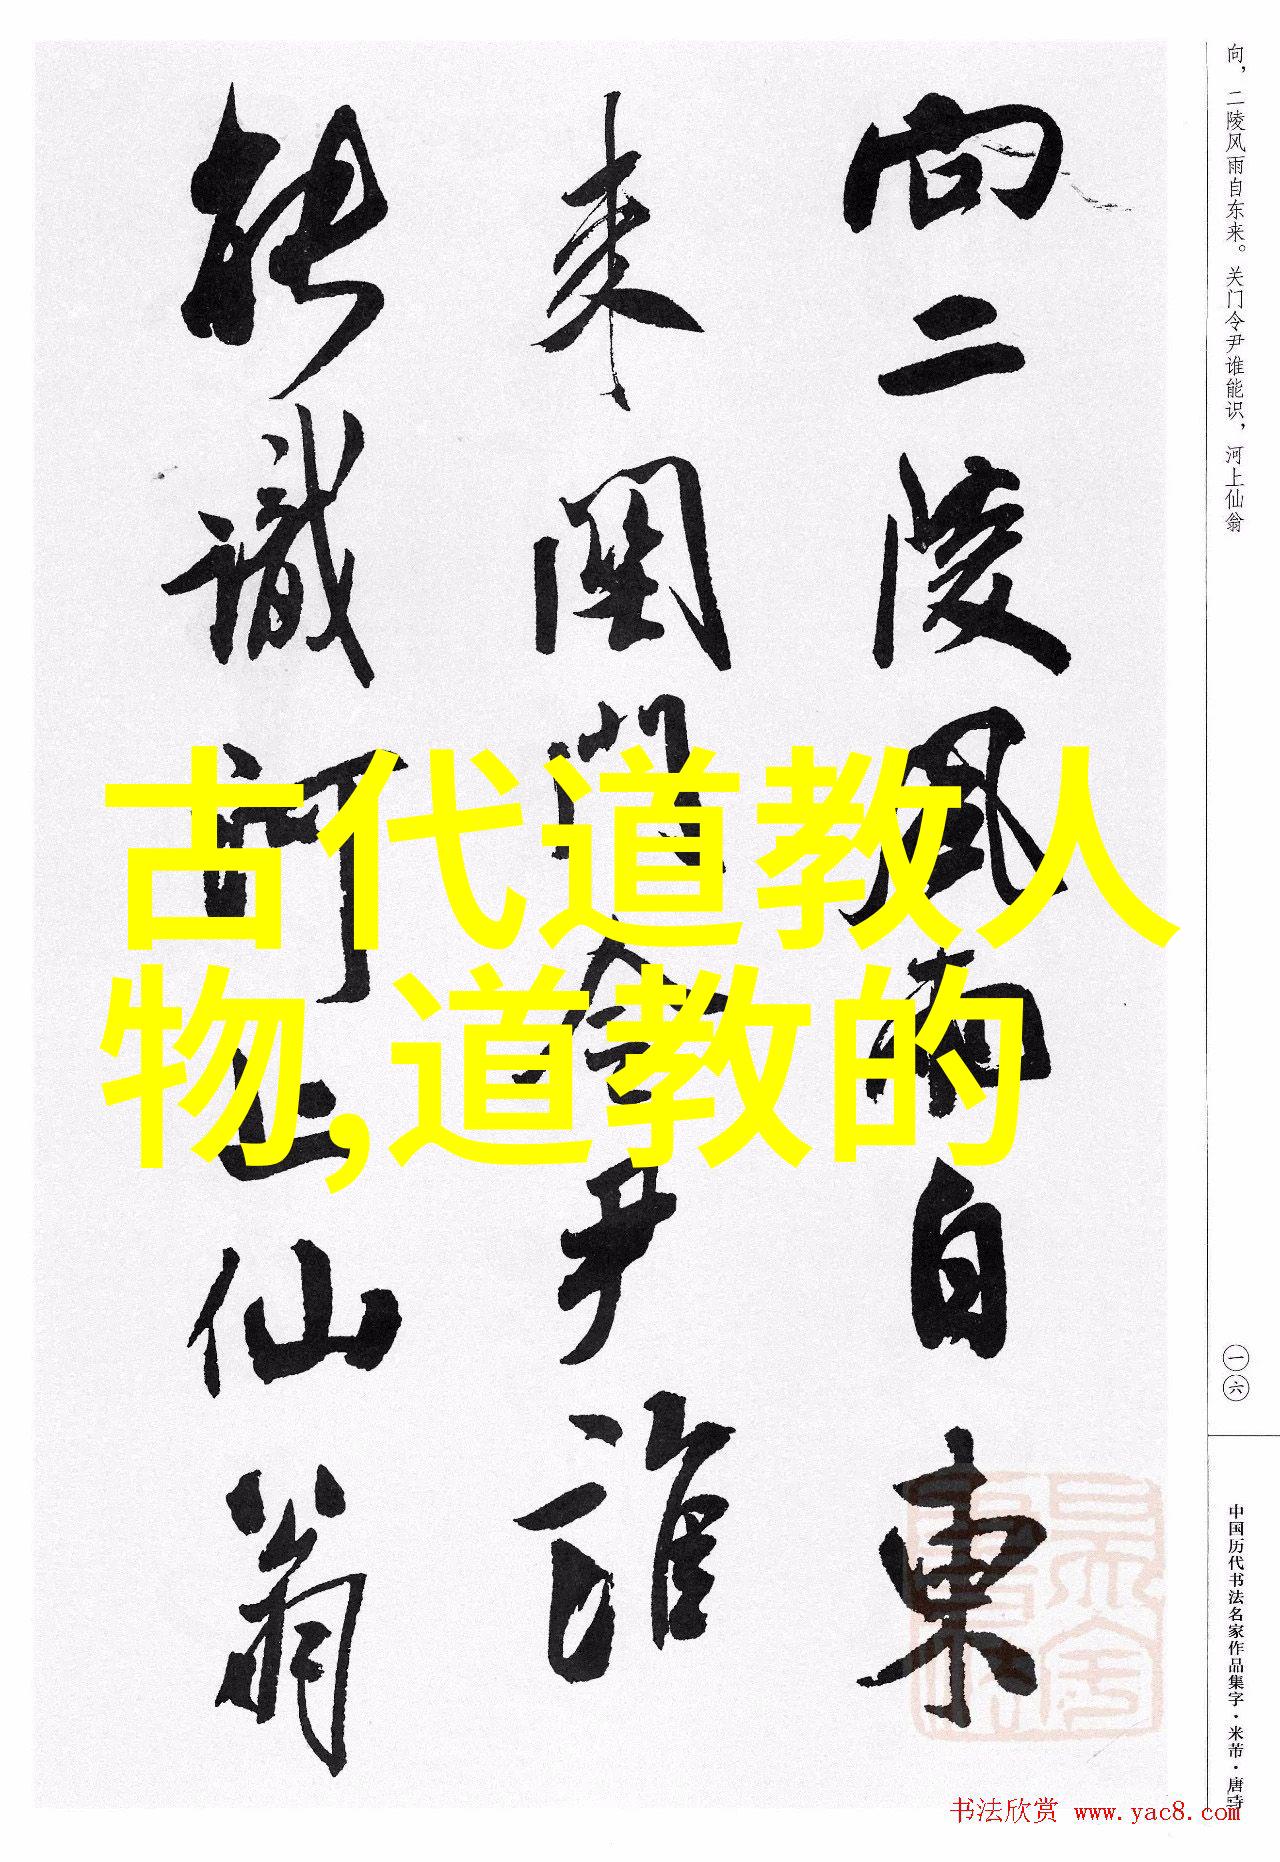 向，二陵风雨自东来。关门令尹谁能识，河上仙翁
向二陵風雨自東
来關門令尹誰
能識河上仙翁
古代道教人
物,道教的
一六
中国历代书法名家作品集字·米芾·唐诗
书法欣赏 www.yac8.com